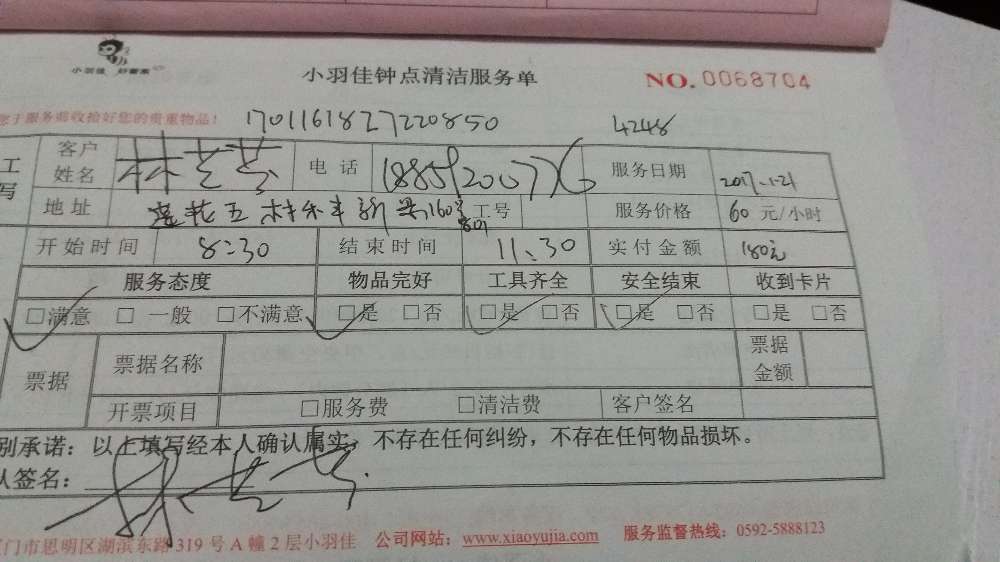 小羽佳 好管家
小羽佳钟点清洁服务单
NO.0068704
您于服务前收拾好您的贵重物品！
1701161827220850
4248
工 客户姓名 电话 18859200776 服务日期 2017.1.21
写 地址 莲花五村 160号 801 工号 服务价格 60元/小时
开始时间 8:30 结束时间 11.30 实付金额 180元
服务态度 物品完好 工具齐全 安全结束 收到卡片
□满意 □一般 □不满意 □是 □否 □是 □否 □是 □否 □是 □否
票据 票据名称 票据金额
开票项目 □服务费 □清洁费 客户签名
别承诺：以上填写经本人确认属实，不存在任何纠纷，不存在任何物品损坏。
人签名：
门市思明区湖滨东路319号A幢2层小羽佳 公司网站：www.xiaoyujia.com 服务监督热线：0592-5888123